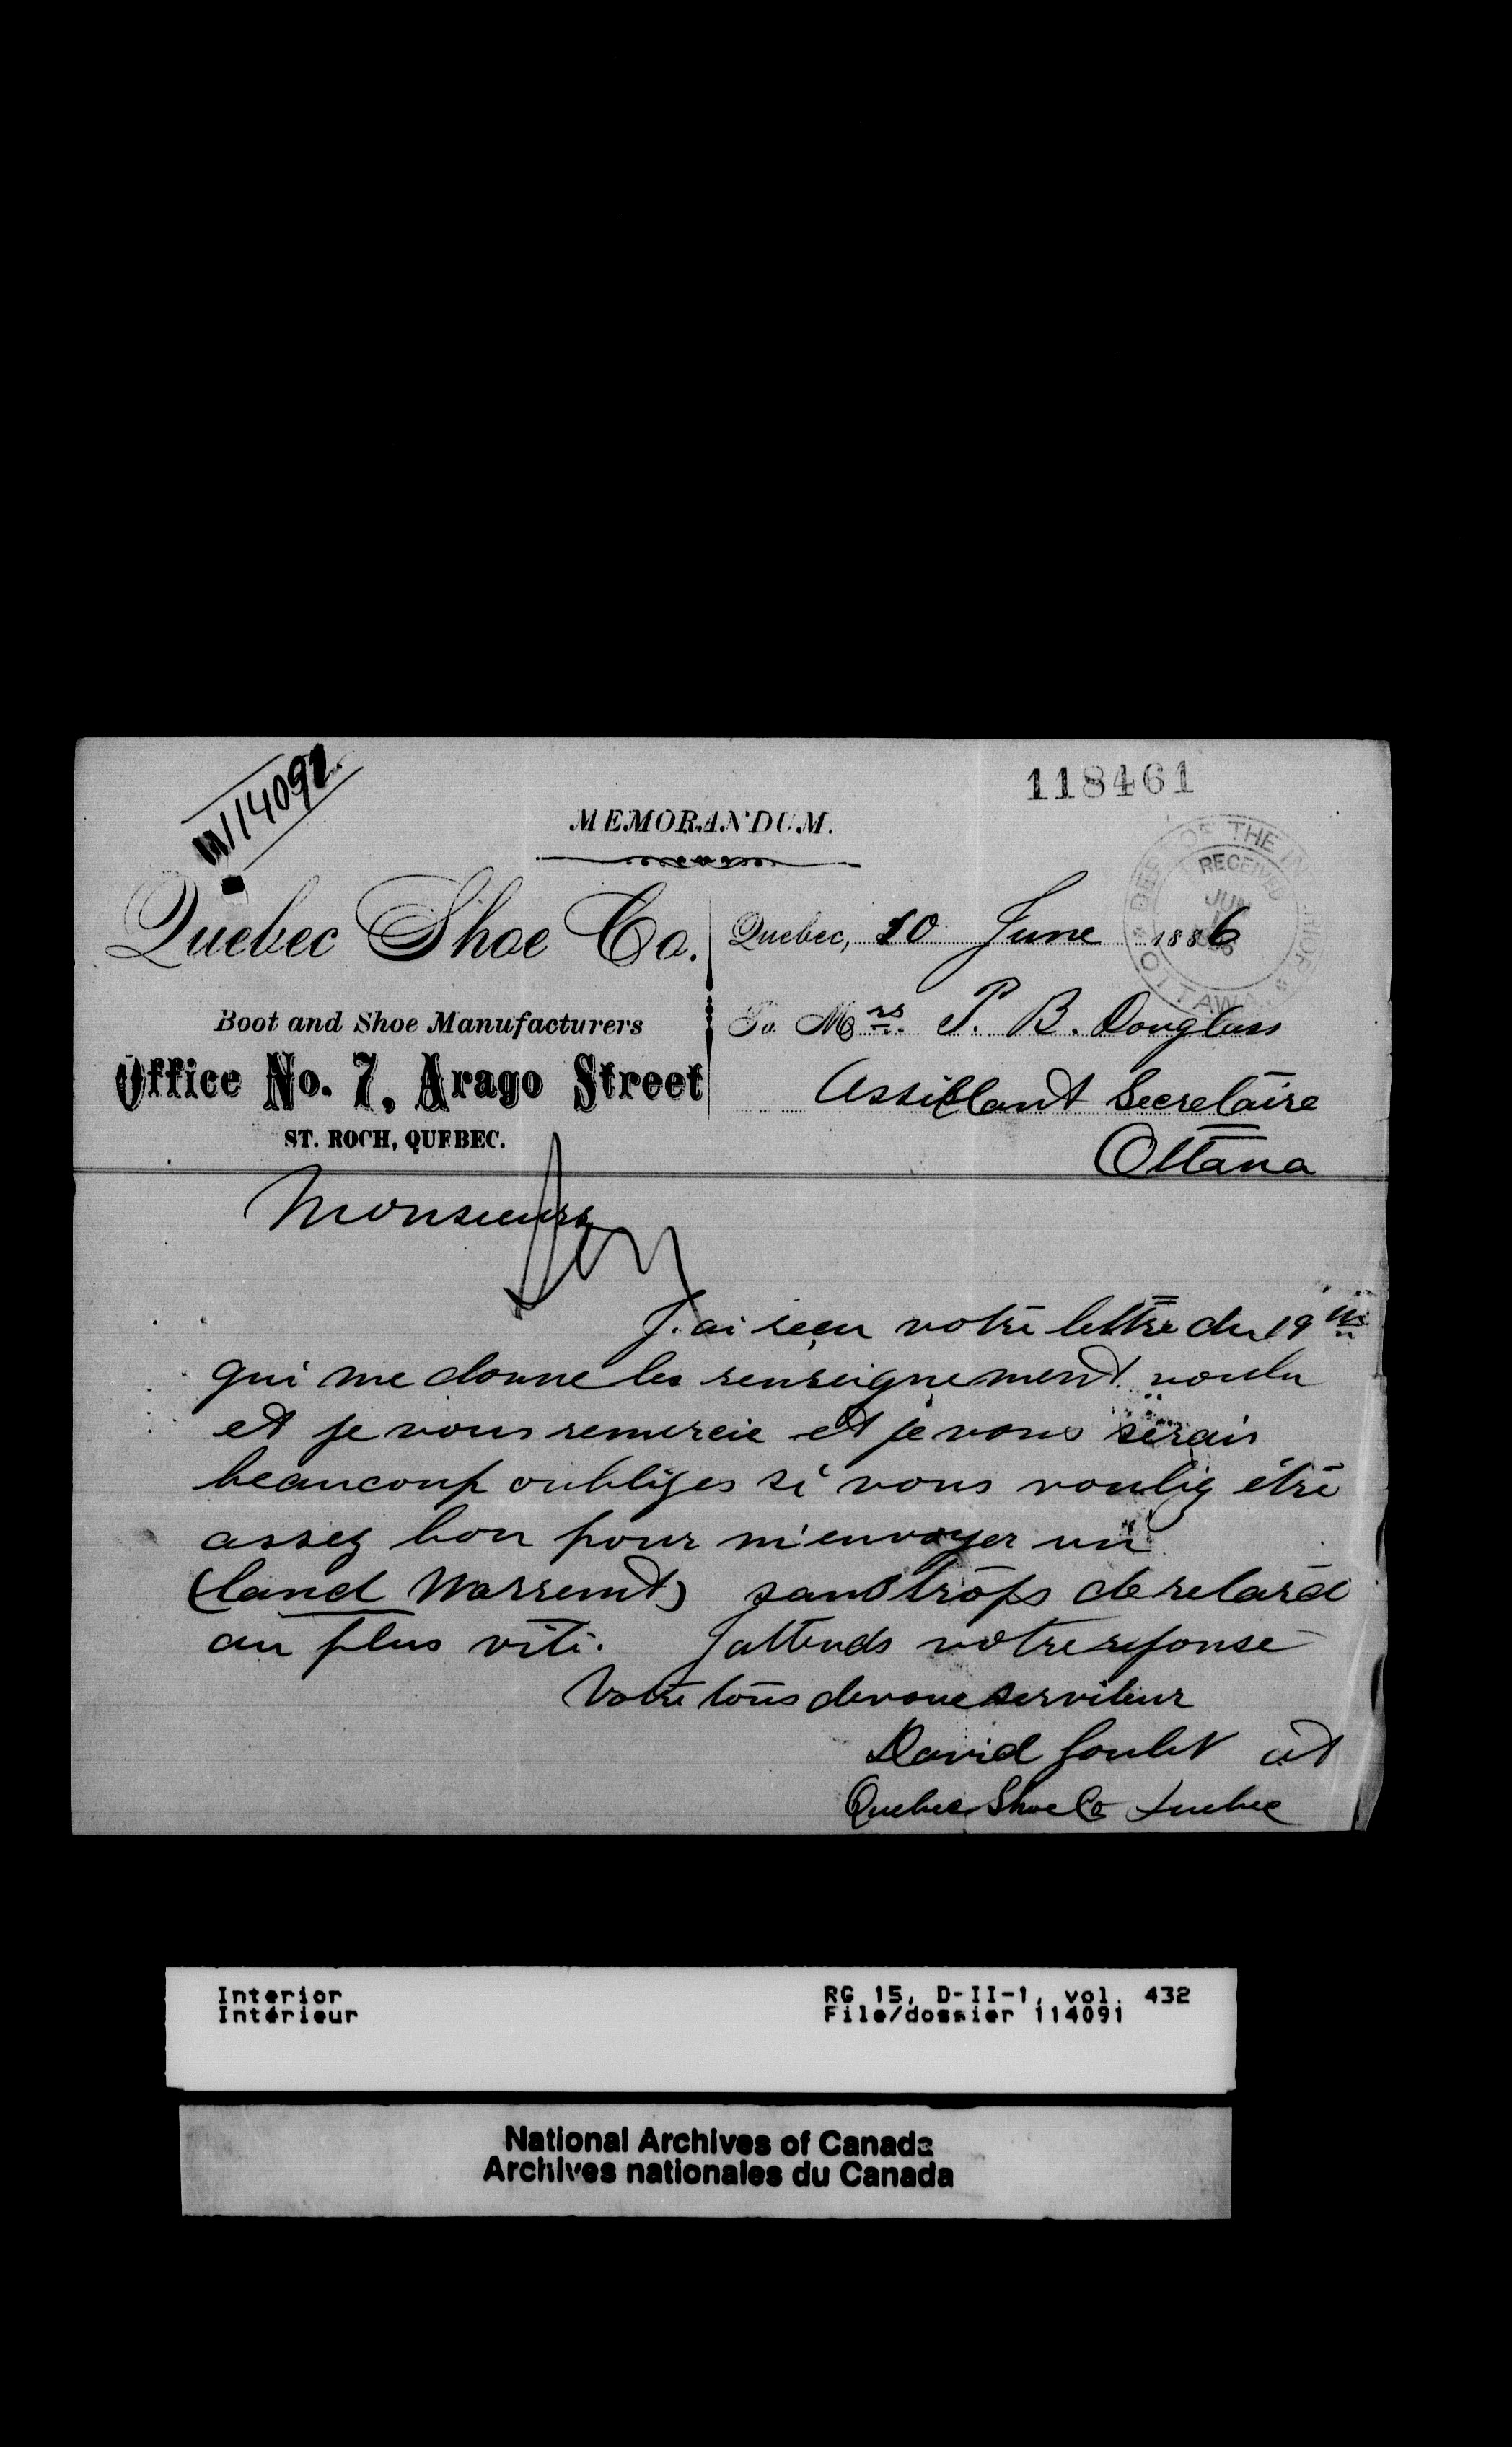 114091
118461
MEMORANDUM.
DEPT OF THE INTERIOR
RECEIVED
JUN
OTTAWA
Quebec Shoe Co.
Quebec, 10 June 1886
Boot and Shoe Manufacturers
To Mrs. P. B. Douglass
Office No. 7, Arago Street
Assistant Secretaire
ST. ROCH, QUEBEC.
Ottawa
Monsieurs
J'ai reçu votre lettre du 19
qui me donne les renseignement voulu
et je vous remercie et je vous serais
beaucoup oubliges si vous voulez être
assez bon pour m'envoyer un
(land Warrent) sans trops de retard
au plus vite. J'attends votre reponse
Votre tous devoue serviteur
David Goulet at
Quebec Shoe Co Quebec
Interior
Intérieur
RG 15, D-II-1, vol. 432
File/dossier 114091
National Archives of Canada
Archives nationales du Canada